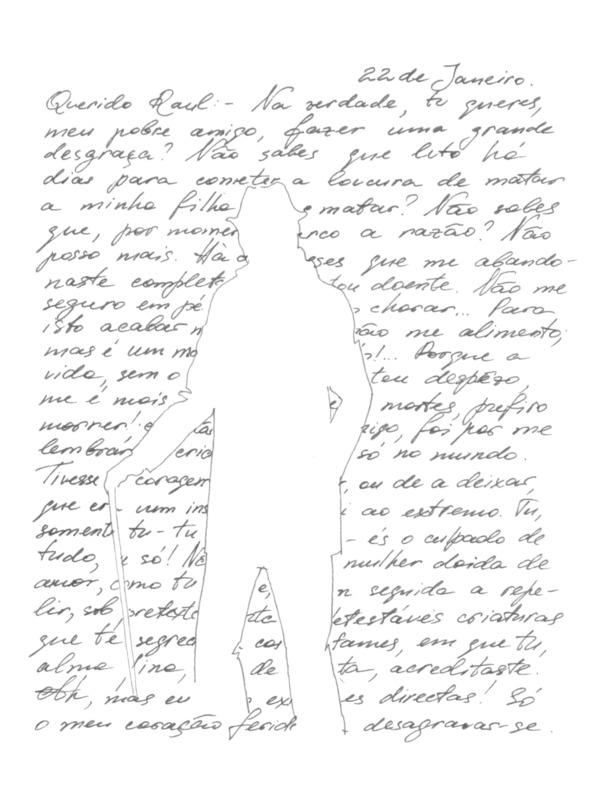 22 de Janeiro.
Querido Raul:- Na verdade, tu queres,
meu pobre amigo, fazer uma grande
desgraça? Não sabes que luto há
dias para cometer a loucura de matar
a minha filha e matar? Não sabes
que, por momen erco a razão? Não
posso mais. Há q eses que me abando-
naste complet tou doente. Não me
seguro em pé chorar... Para
isto acabar n ão me alimento;
mas é um mo s!... Porque a
vida, sem o tou despezo,
me é mais e mortes, prefiro
morrer! tas igo, foi por me
lembrar eria só no mundo.
Tivesse coragem , ou de a deixar,
que er um ins i ao extremo. Tu,
soment tu-tu - és o culpado de
tudo, e só! Nã mulher doida de
amor, omo tu e, n seguida a repe-
lir, sob pretexto etestáveis criaturas
que té segred cas fames, em que tu,
alma fina, de ta, acreditaste.
Oh, mas eu ex es directas! Só
o meu coração ferid desagravar-se.